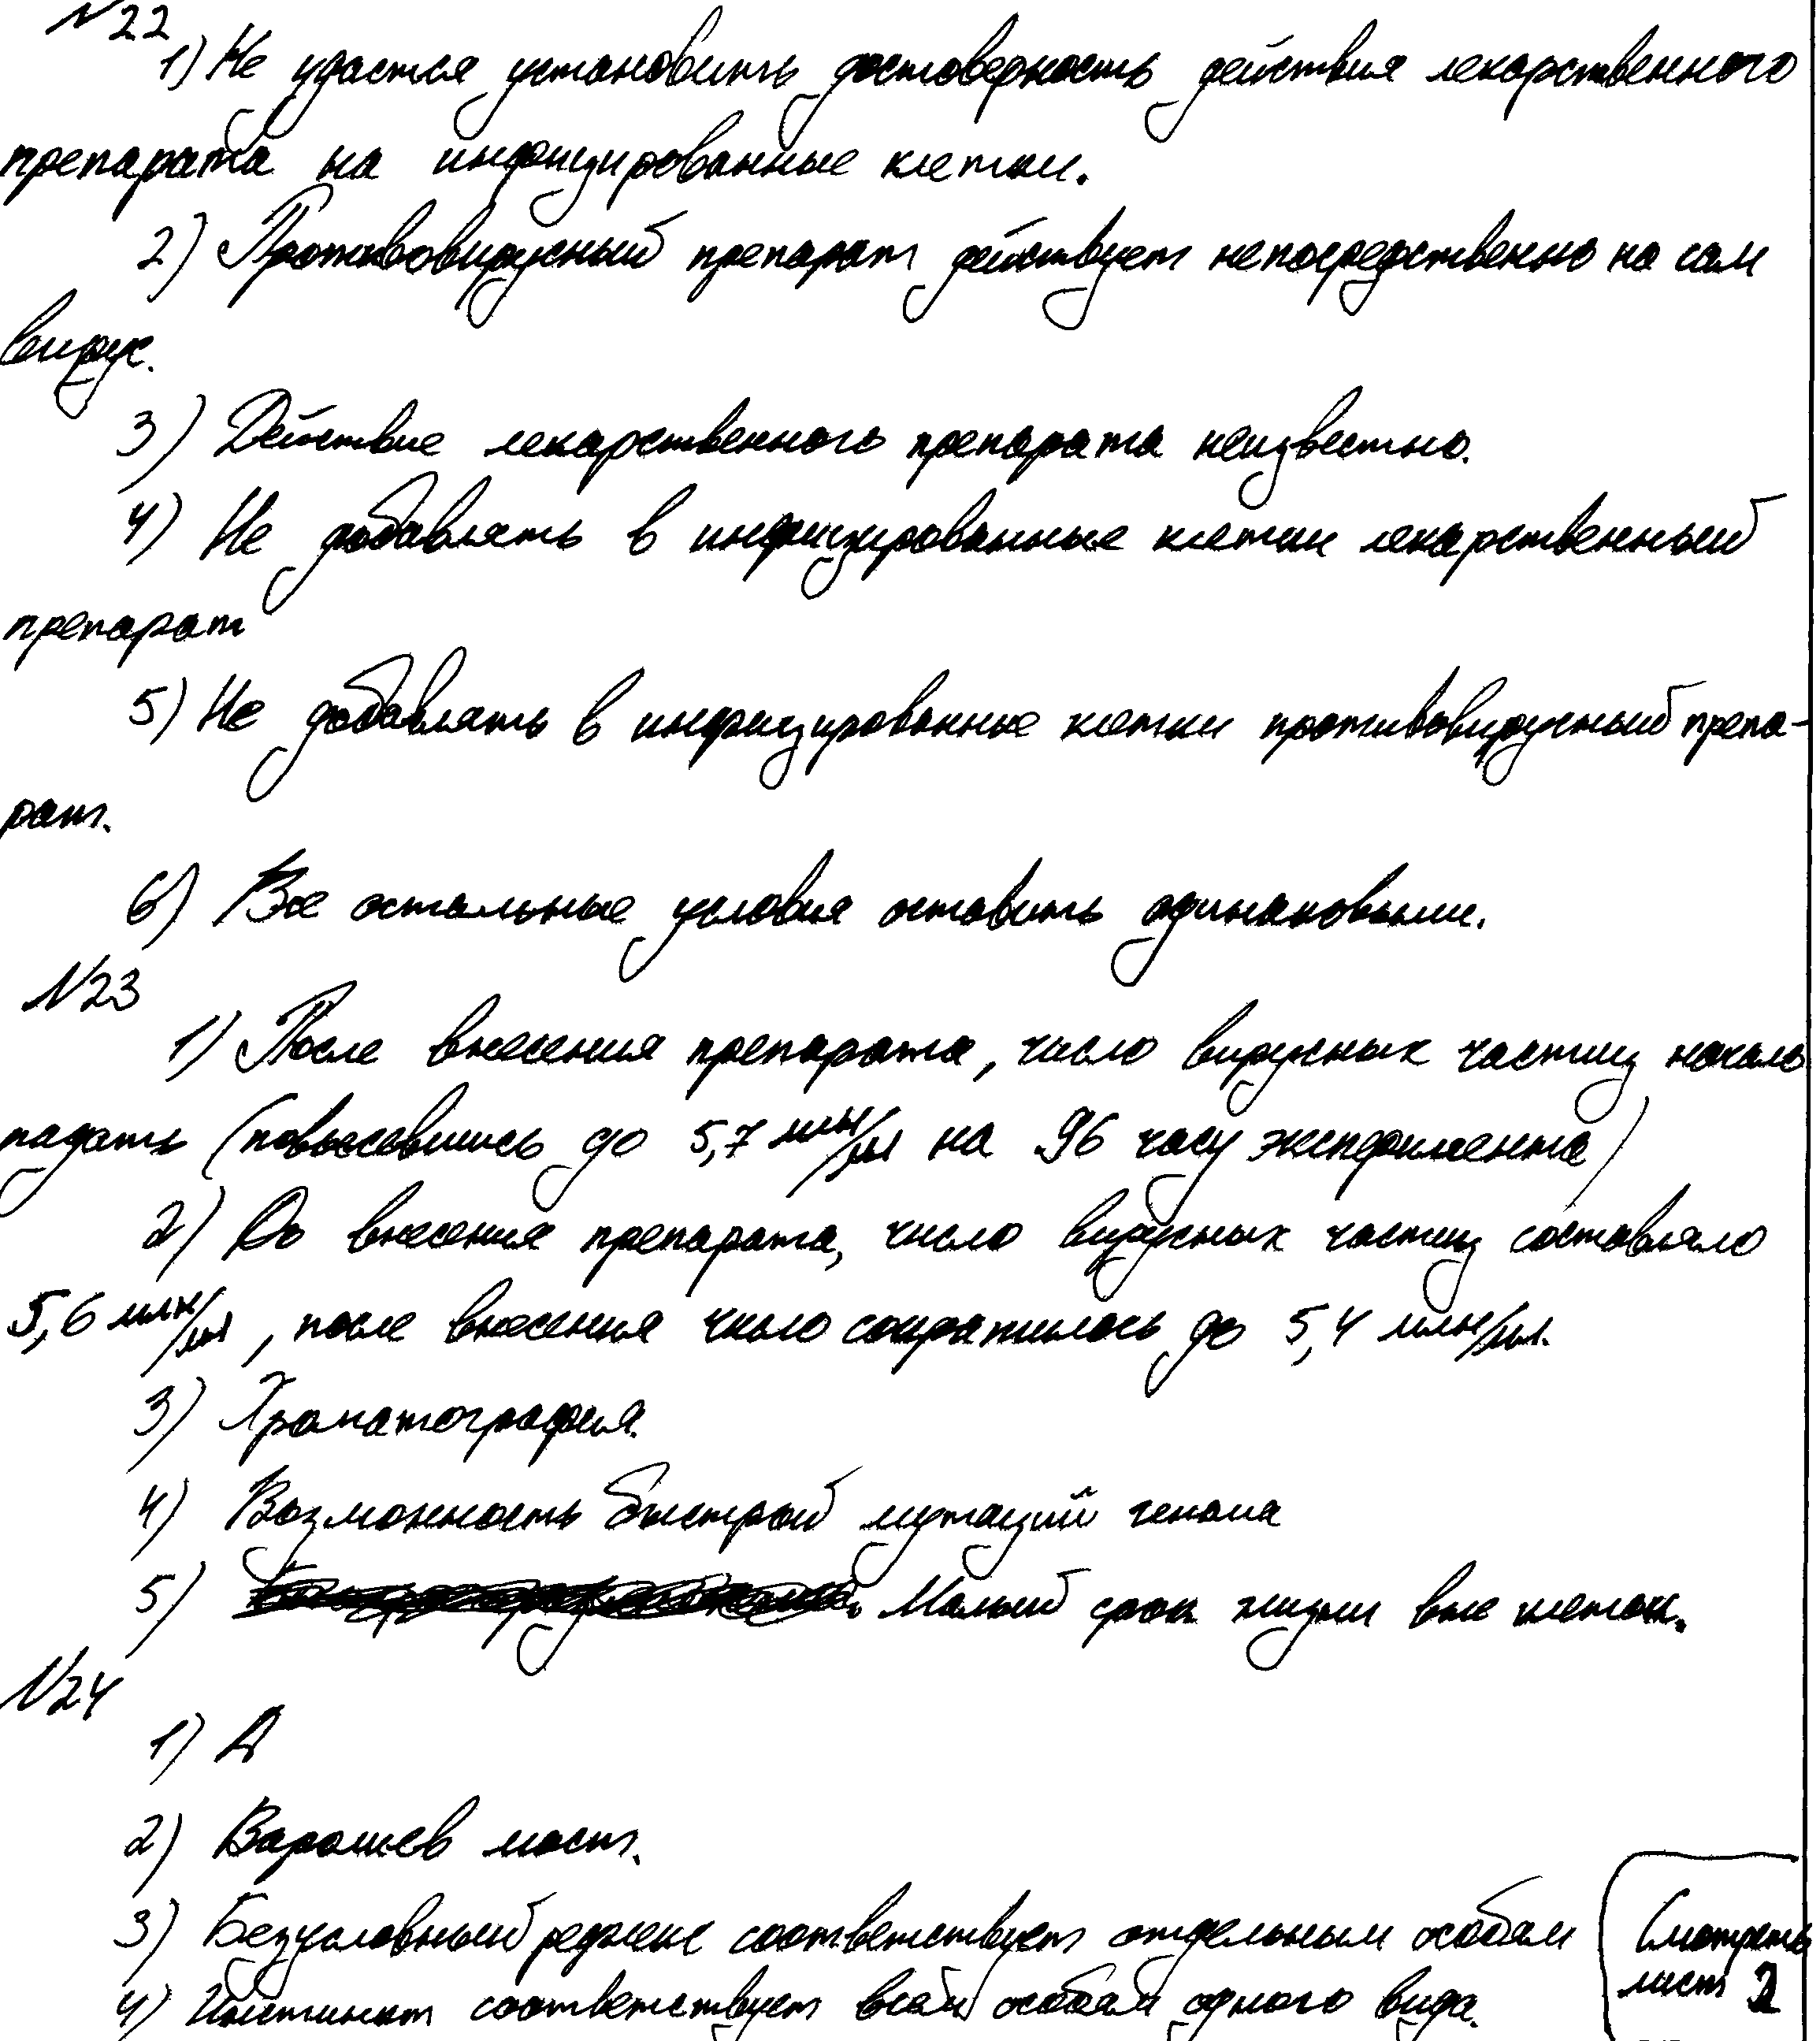 №22
1) Не удастся установить достоверность действия лекарственного
препарата на инфицированные клетки.
2) Противовирусный препарат действует непосредственно на сам
вирус.
3) Действие лекарственного препарата неизвестно.
4) Не добавлять в инфицированные клетки лекарственный
препарат
5) Не добавлять в инфицированные клетки противовирусный препа-
рат.
6) Все остальные условия оставить одинаковыми.
№23
1) После внесения препарата, число вирусных частиц начало
падать (повысившись до 5,7 млн/мл на 96 часу эксперимента)
2) До внесения препарата, число вирусных частиц составляло
5,6 млн/мл, после внесения число сократилось до 5,4 млн/мл.
3) Хроматография.
4) Возможность быстрой мутаций генома
5) Малый срок жизни вне клетки.
№24
1) А
2) Варолиев мост.
3) Безусловный рефлекс соответствует отдельным особям
4) Инстинкт соответствует всем особям одного вида.
Смотреть
лист 2